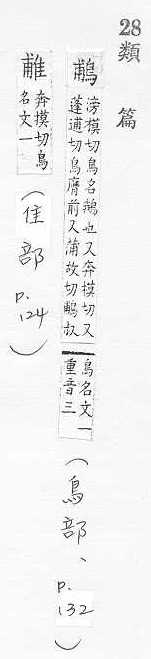 28
類篇
鵏
滂模切鳥名鵜也又奔模切又
蓬逋切鳥膺前又蒲故切鵏䳇
鳥名文一
重音三
(鳥部、p.132)
䧛
奔模切鳥
名文一
(隹部 p.124)